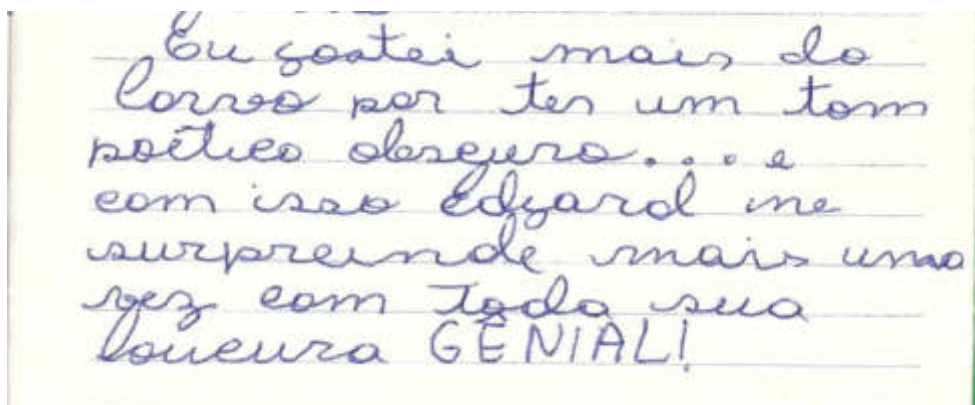 Eu gostei mais do
Corvo por ter um tom
poético obscuro.... e
com isso Edgard me
surpreinde mais uma
vez com toda sua
loucura GÊNIAL!